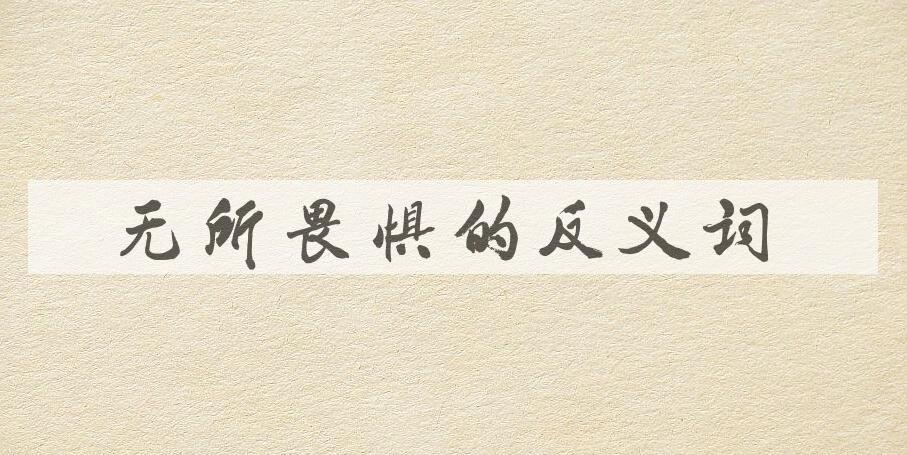 无所畏惧的反义词